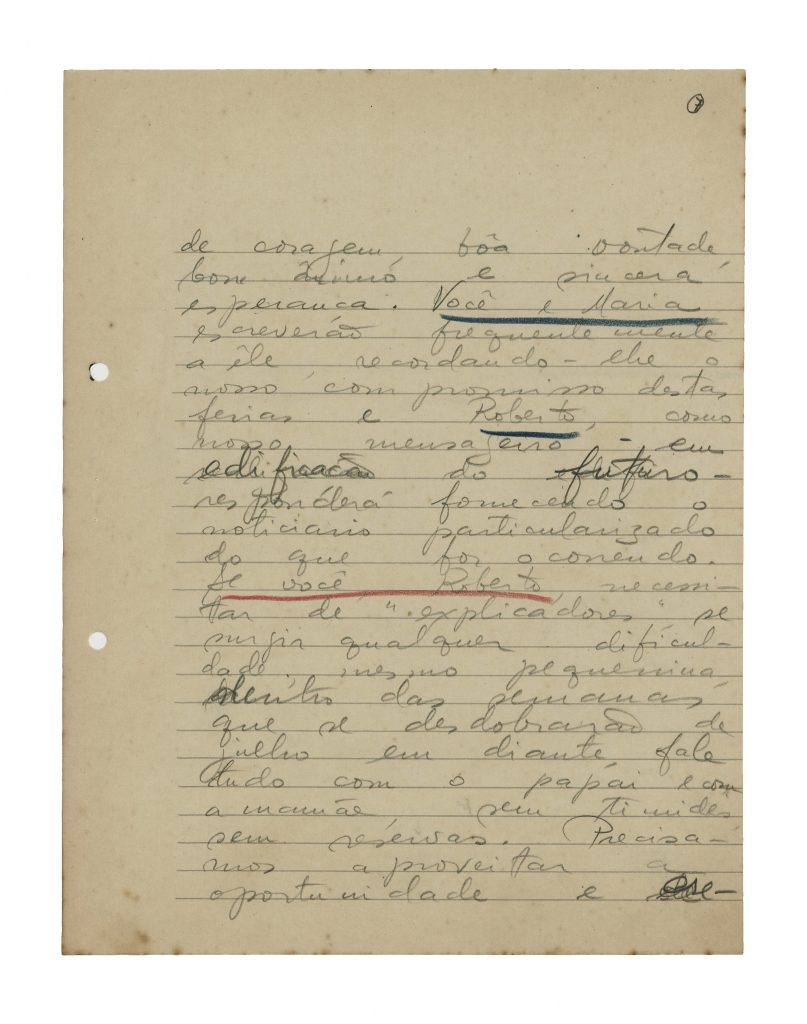 7
de coragem, bôa vontade,
bom ânimo e sincera
esperanca. Você e Maria
escreverão frequentemente
a êle, recordando-lhe o
nosso compromisso destas
ferias e Roberto, como
nosso mensageiro - em
edificacão do futuro -
responderá fornecendo o
noticiario particularizado
do que for ocorrendo.
Se você, Roberto, necessi-
tar de "explicadores" se
surgir qualquer dificul-
dade, mesmo pequenina,
dentro das semanas,
que se desdobrarão de
julho em diante, fale
tudo com o papai e com
a mamãe, sem timidês,
sem resérvas. Precisa-
mos aproveitar a
oportunidade e